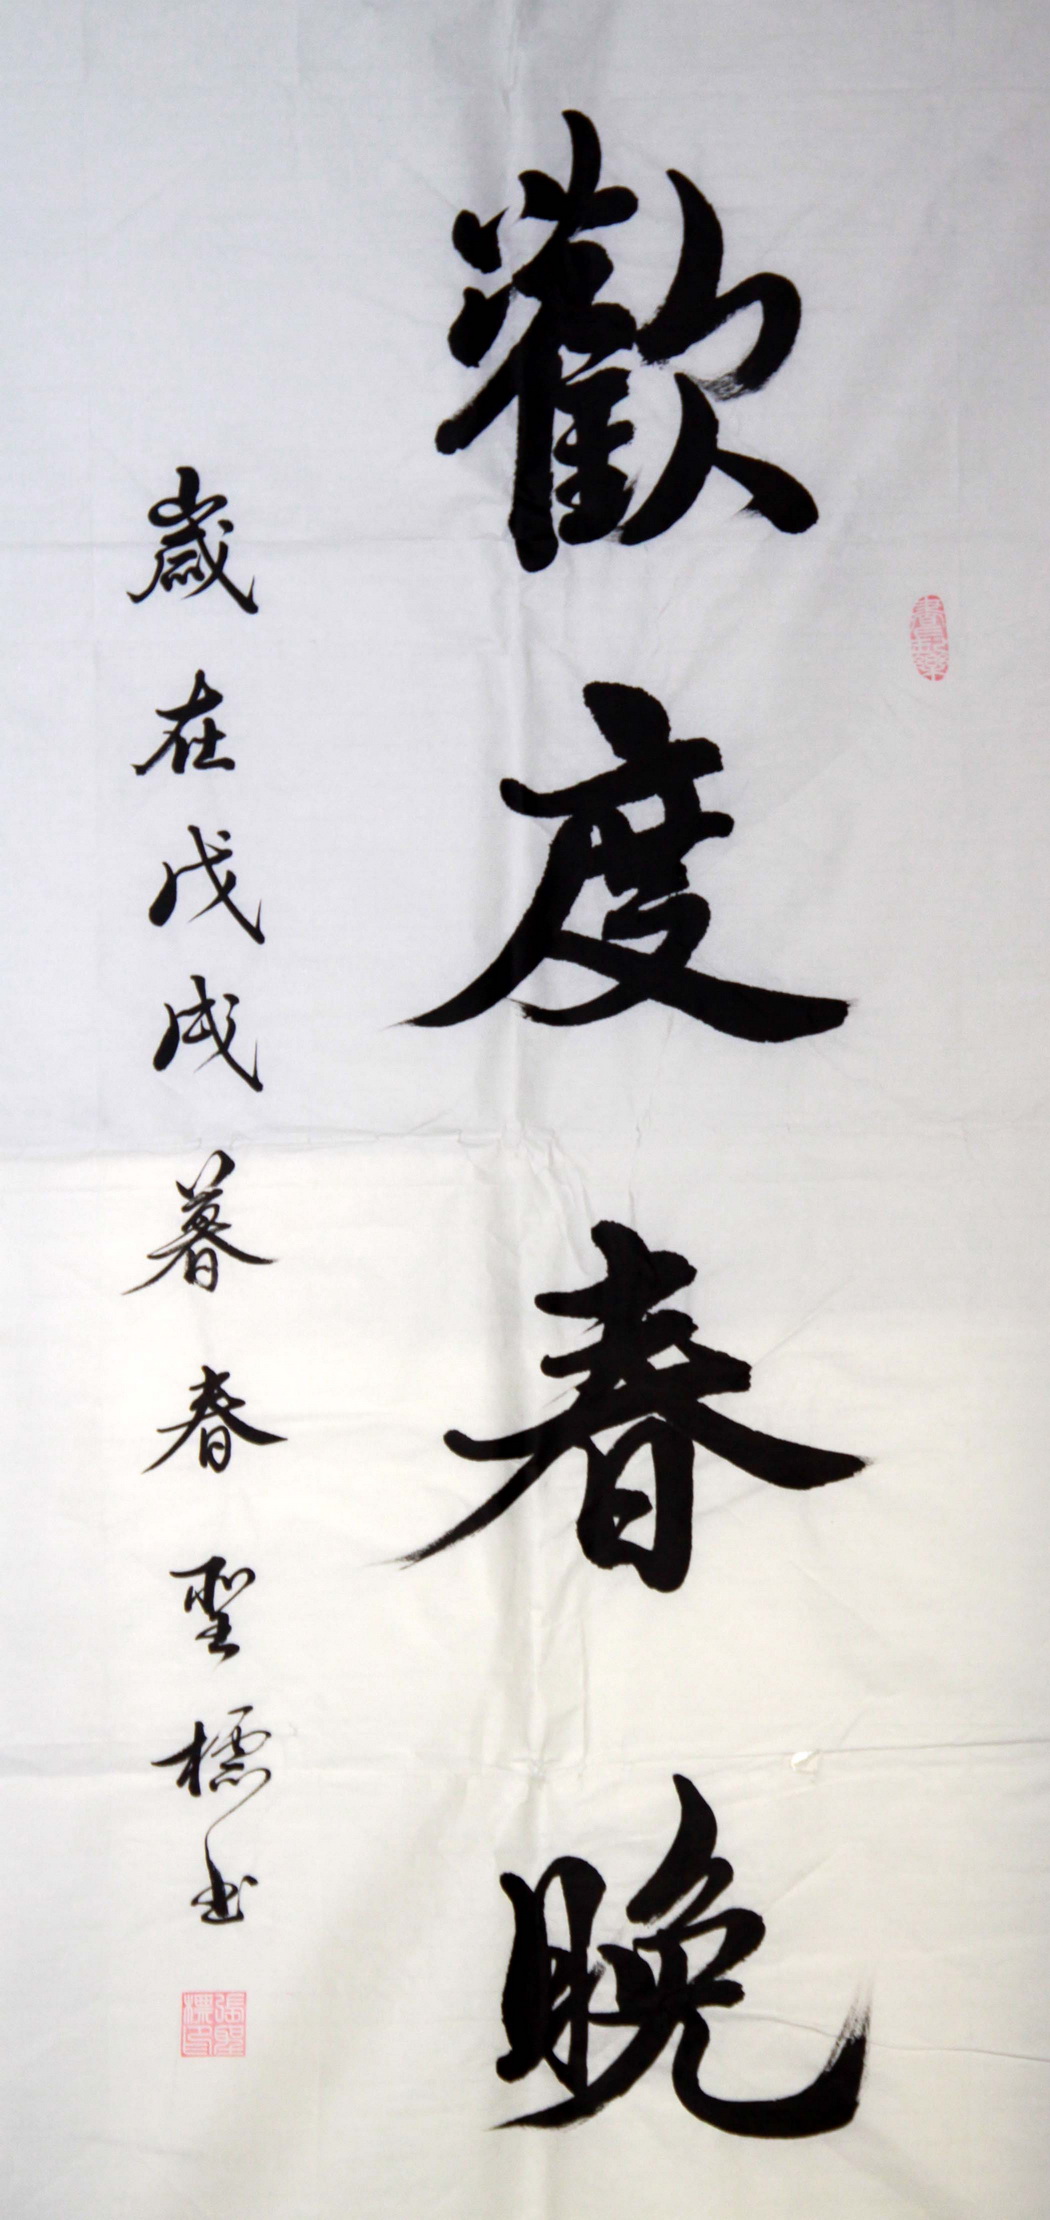 歡度春晚
歲在戊戌暮春聖標书
張聖標印